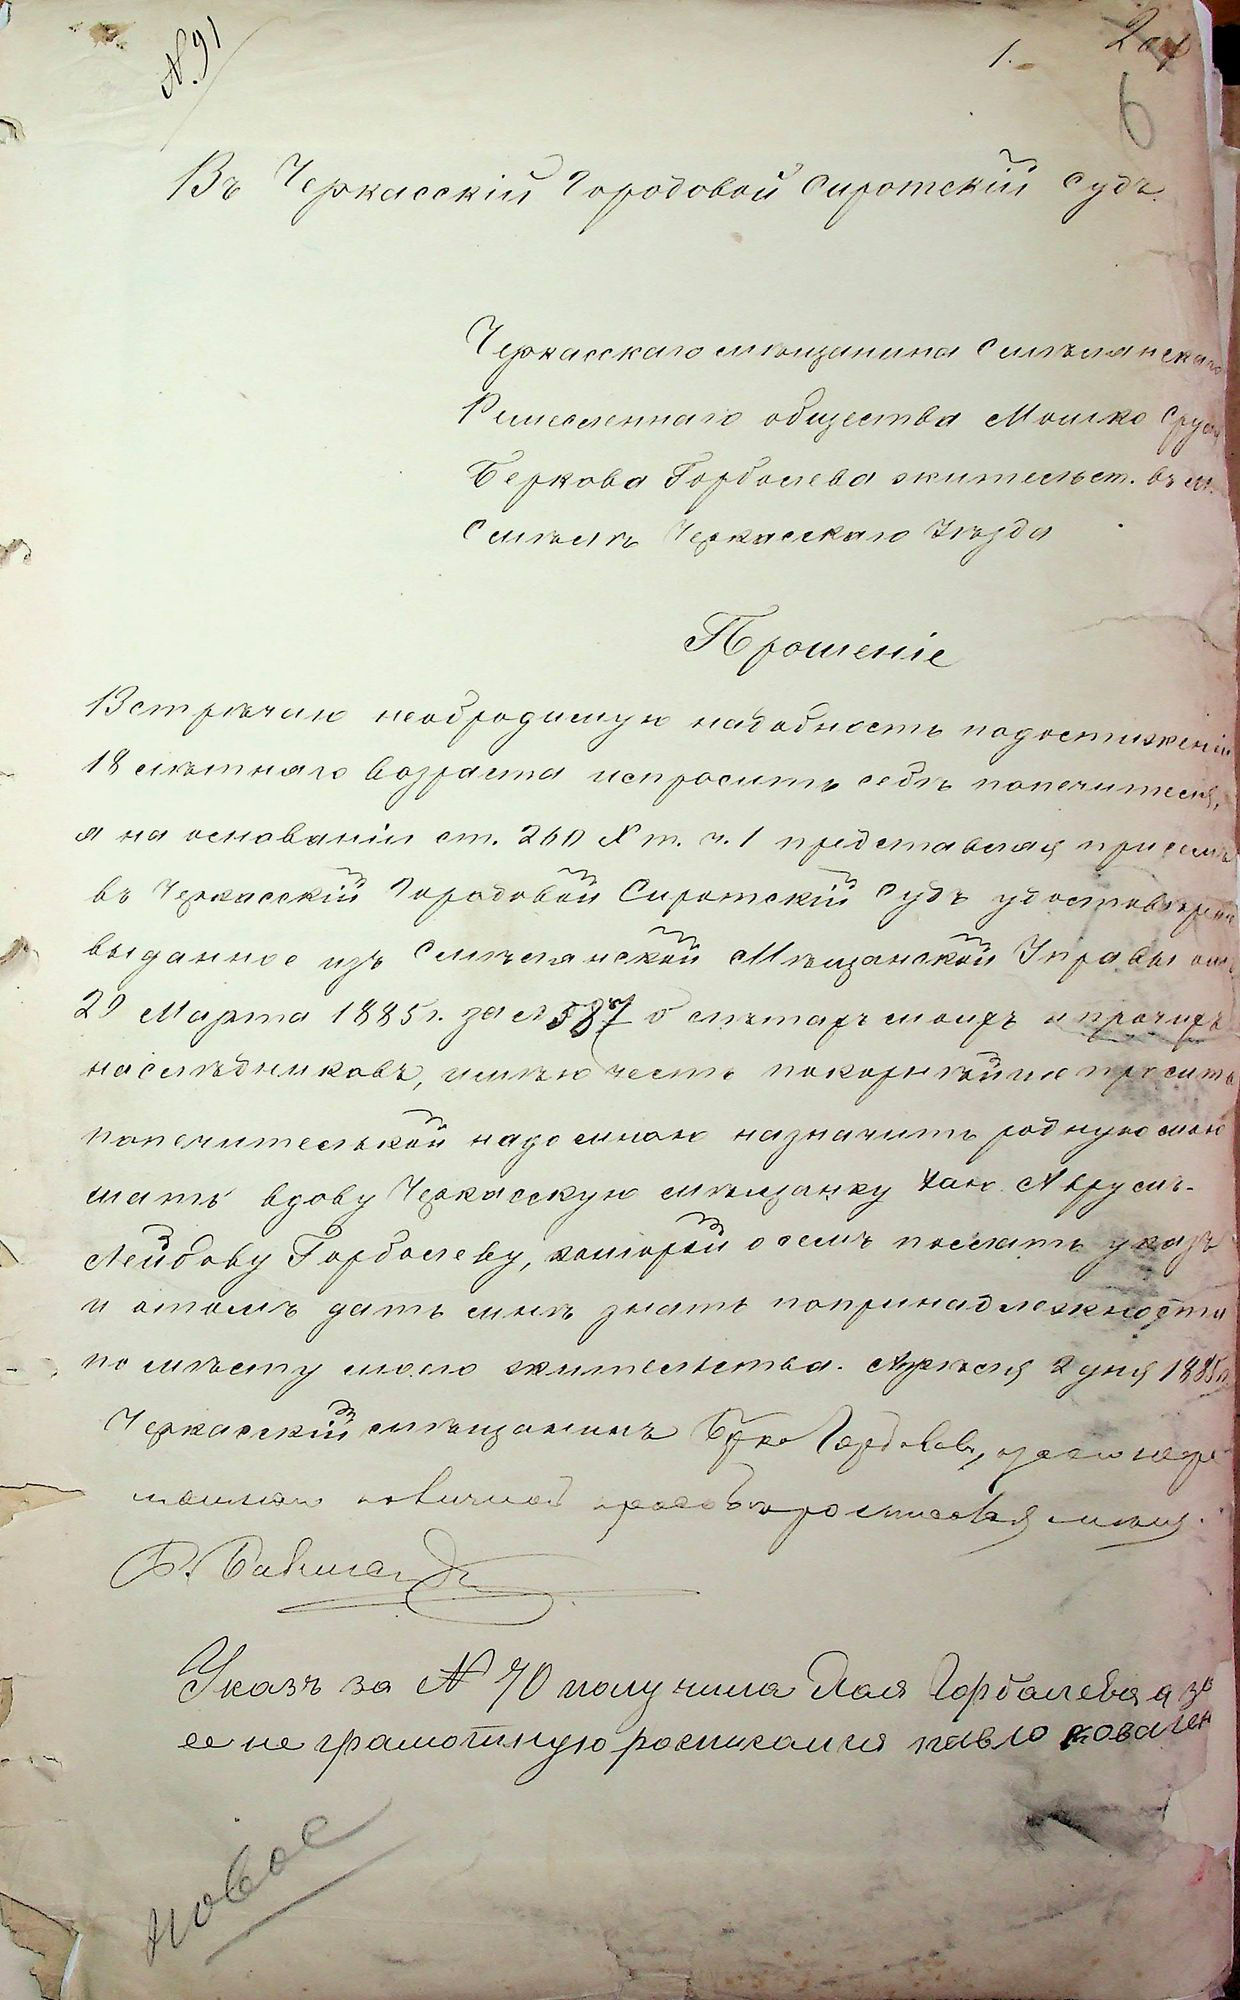 № 91
1.
6
Въ Черкасскій Городовой Сиротскій Судъ.
Черкасскаго мѣщанина Смѣлянскаго
Ремесленнаго общества Мошко Срул
Беркова Горбалева жительст. въ м.
Смѣлѣ Черкасскаго Уѣзда
Прошеніе
Встрѣчаю необходимую надобность по достиженіи
18 лѣтняго возраста испросить себѣ попечителя,
я на основаніи ст. 260 X т. ч. 1 представляя при семъ
въ Черкасскій Городовой Сиротскій Судъ удостовѣреніе
выданное изъ Смѣлянской Мѣщанской Управы отъ
29 Марта 1885 г. за № 587 о лѣтахъ моихъ и прочихъ
наслѣдниковъ, имѣю честь покорнѣйше просить
попечительной надо мною назначить родную мою
мать вдову Черкасскую мѣщанку Хаю Аврумъ-
Лейбову Горбалеву, которой о семъ послать указъ
и о томъ дать мнѣ знать по принадлежности
по мѣсту моего жительства. Апрѣля 2 дня 1885 г.
Черкасскій мѣщанинъ
Указъ за № 70 получила Хая Горбалева а за
ее не грамотную росписался павло ковален
новое